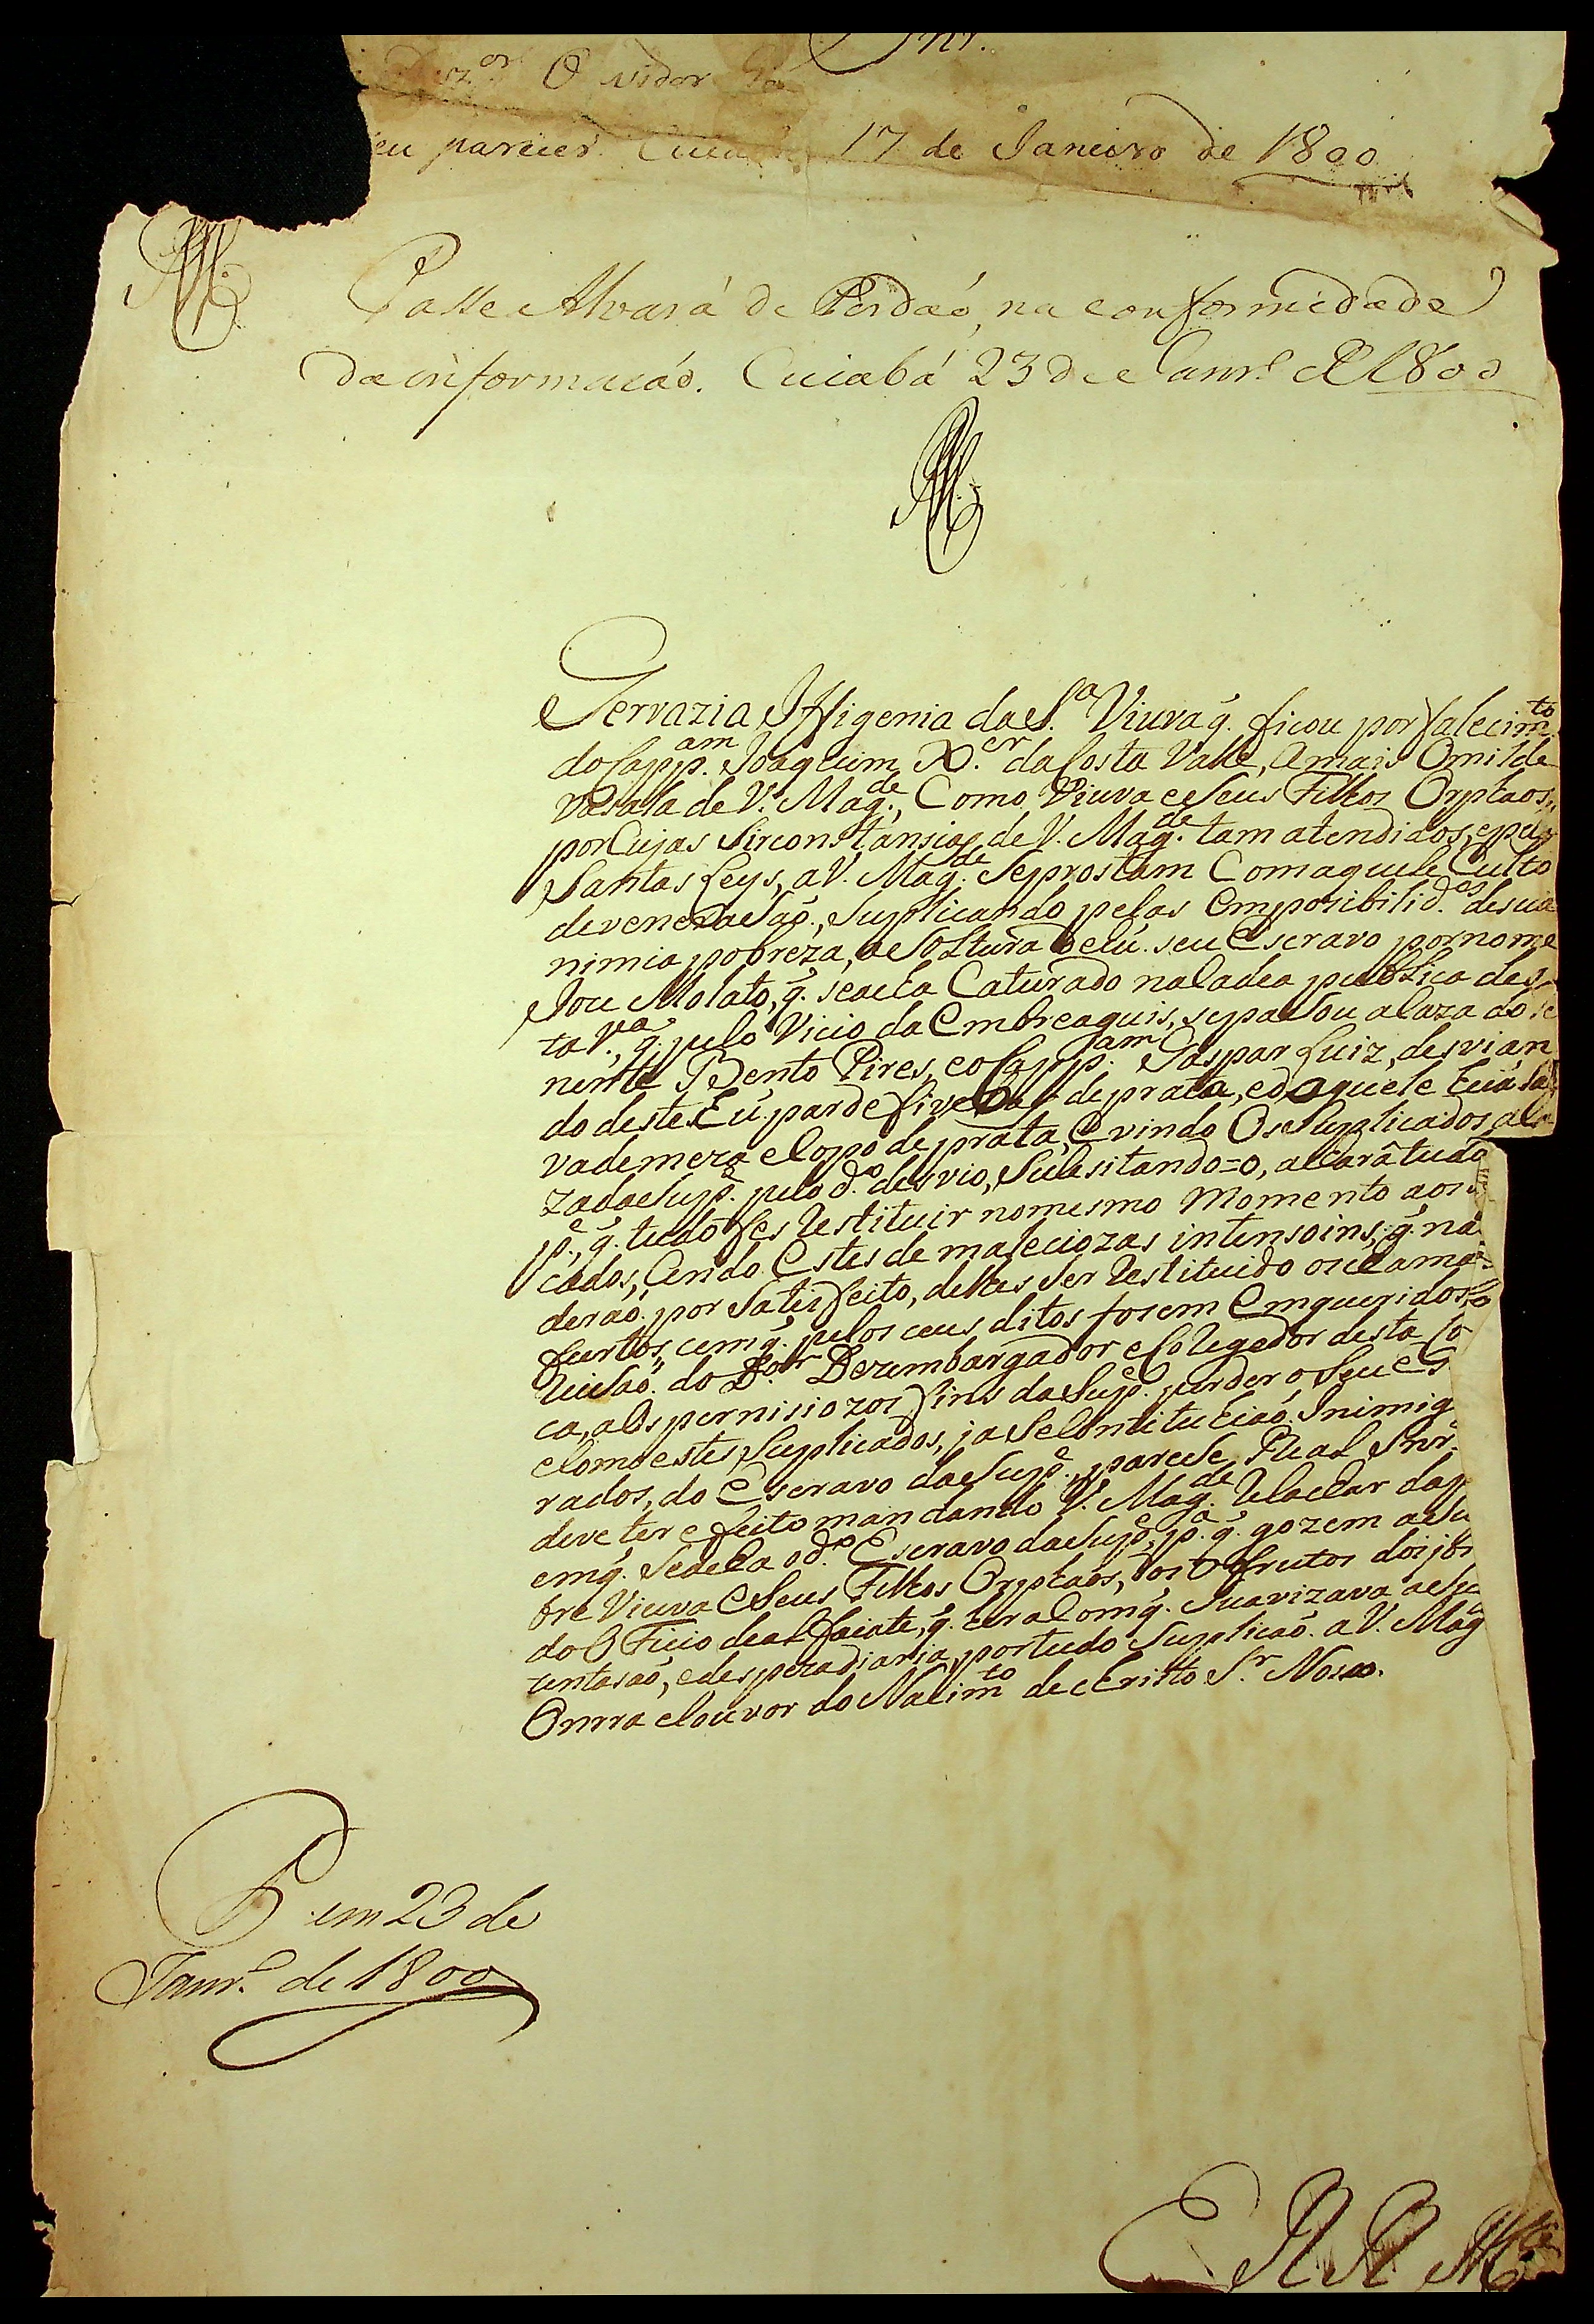 Snr.
Ouvidor
seu parecer. Cuiabá 17 de Janeiro de 1800
Passe Alvará de Perdaõ, na conformidade
da informacaõ. Cuiabá 23 de Janr.º de 1800
Gervazia Iffigenia da S.ª Viuva q̃. ficou por falecim.to
do Capp.am Joaquim X.er da Costa Valle, a mais Omilde
vasala de V. Mag.de, Como Viuva e Seus Filhos Orphaos,
por Cujas Sirconstansias de V. Mag.de tam atendidos, e por
Santas Leys, a V. Mag.de Se prostam Com aquele Culto
de veneraSaõ, Suplicando pelas Emposibilid.as de sua
nimia pobreza, a Soltura de hú. seu Escravo por nome
Joze Molato, q̃. se acha Capturado na Cadea publica des
ta V.ª, q̃. pelo Vicio da Embreaguis, se pasou a Caza do Te
nente Bento Pires, e o Capp.am Gaspar Luiz, desvian
do deste hú. par de fivelas de prata, e daquele huá Sal
va de meza e Copo de prata, e vindo Os Suplicados a Ca
za da Sup.e pelo d.º desvio, Sulesitando=o, achará tudo
p.e, q̃. tudo fes Restituir no mesmo Momento aos
cados, Sendo Estes de maleciozas intensoins, q̃. na
deraõ por Satisfeito, delles Ser Restituido o reclama
furtos, em q̃. pelos ceus ditos fosem Emqueridos,
do D.or Dezembargador e Coregedor desta Co
ca, a Os pernisiozos fins da Sup.e perder o Seu es
e Como estes Suplicados, ja Se Constituhiaõ Inimig
rados, do Escravo da Sup.e, parese Rial Snr.
deve ter efeito mandando V. Mag.de Relachar da p
em q̃. Se acha o d.º Escravo da Sup.e, p.ª q̃. gozem a Su
bre Viuva e Seus Filhos Orphaõs, dos frutos dos jor
do Oficio de alfaiate, q̃. hera Com q̃. Suavizava a Su
tentasaõ, e despeza diaria, por tudo Suplicaõ. a V. Mag
Onrra e louvor do Nacim.to de christo S.r Noso.
P. em 23 de
Janr.º de 1800
E R R M.ce